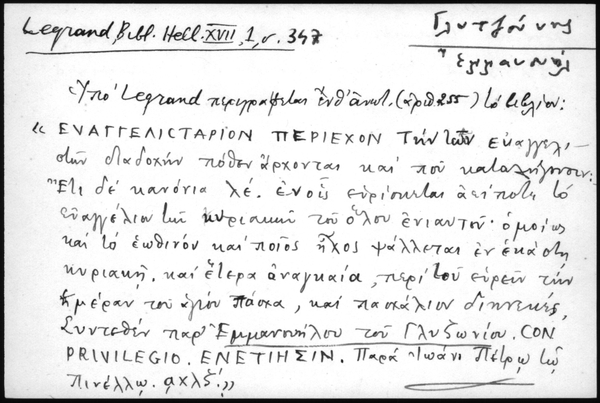 Legrand, Bibl. Hell. XVII, 1, σ. 347
Γλυτζούνης
Ἐμμανουήλ
Ὑπό Legrand περιγράφεται ἐνθ' ἀνωτ. (ἀριθ 255) τό βιβλίον:
« ΕΥΑΓΓΕΛΙΣΤΑΡΙΟΝ ΠΕΡΙΕΧΟΝ Τήν τῶν εὐαγγελι-
στῶν διαδοχήν πόθεν ἄρχονται καί ποῦ καταλήγουσιν:
Ἔτι δέ κανόνια λέ. ἐν οἷς εὑρίσκεται ἀείποτε τό
εὐαγγέλιον τῶν κυριακῶν τοῦ ὅλου ἐνιαυτοῦ· ὁμοίως
καί τό ἑωθινόν καί ποῖος ἦχος ψάλλεται ἐν ἑκάστη
κυριακῇ. καί ἕτερα ἀναγκαία, περί τοῦ εὑρεῖν τήν
ἡμέραν τοῦ ἁγίου πάσχα, καί πασχάλιον διηνεκές,
Συντεθέν παρ' Ἐμμανουήλου τοῦ Γλυζωνίου. CON
PRIVILEGIO. ΕΝΕΤΙΗΣΙΝ. Παρά Ἰωάνι Πέτρῳ τῷ
Πινέλλῳ. αχλξ΄.»